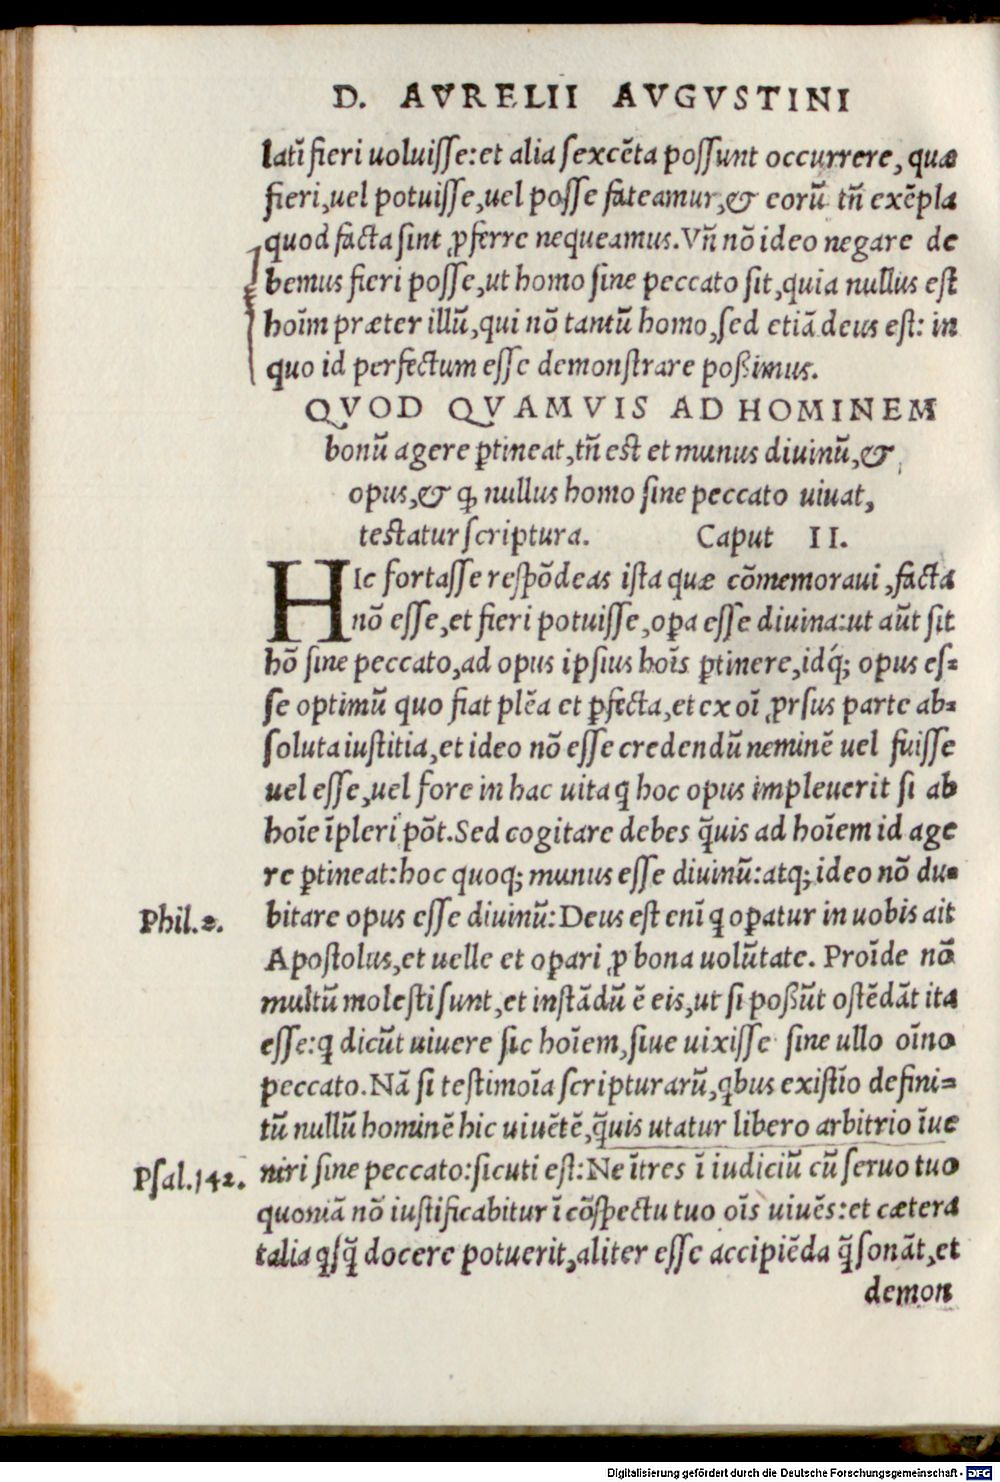 D. AVRELII AVGVSTINI
latĩ fieri uoluiſſe: et alia ſexcẽta poſſunt occurrere, quæ
fieri, uel potuiſſe, uel poſſe fateamur, & eorũ tñ exẽpla
quod facta ſint ꝓferre nequeamus. Vñ nõ ideo negare de
bemus fieri poſſe, ut homo ſine peccato ſit, quia nullus eſt
hoĩm præter illũ, qui nõ tantũ homo, ſed etiã deus eſt: in
quo id perfectum eſſe demonſtrare poßimus.
QVOD QVAMVIS AD HOMINEM
bonũ agere ꝑtineat, tñ est et munus diuinũ, &
opus, & ꝙ nullus homo ſine peccato uiuat,
teſtatur ſcriptura. Caput II.
HIc fortaſſe reſpõdeas iſta quæ cõmemoraui, facta
nõ eſſe, et fieri potuiſſe, oꝑa eſſe diuina: ut aũt ſit
hõ ſine peccato, ad opus ipſius hoĩs ꝑtinere, idq́; opus eſ-
ſe optimũ quo fiat plẽa et ꝑfecta, et ex oĩ ꝓrſus parte ab-
ſoluta iuſtitia, et ideo nõ eſſe credendũ neminẽ uel fuiſſe
uel eſſe, uel fore in hac uita q hoc opus impleuerit ſi ab
hoĩe ĩpleri põt. Sed cogitare debes q̃uis ad hoĩem id age
re ꝑtineat: hoc quoq; munus eſſe diuinũ: atq; ideo nõ du-
Phil.2. bitare opus eſſe diuinũ: Deus est enĩ q oꝑatur in uobis ait
Apoſtolus, et uelle et oꝑari ꝓ bona uolũtate. Proĩde nõ
multũ moleſti ſunt, et inſtãdũ ẽ eis, ut ſi poßũt oſtẽdãt ita
eſſe: ꝙ dicũt uiuere ſic hoĩem, ſiue uixiſſe ſine ullo oĩno
peccato. Nã ſi teſtimoĩa ſcripturarũ, qbus exiſtĩo defini-
tũ nullũ hominẽ hic uiuẽtẽ, q̃uis utatur libero arbitrio ĩue
Pſal.142. niri ſine peccato: ſicuti eſt: Ne ĩtres ĩ iudiciũ cũ ſeruo tuo
quoniã nõ iuſtificabitur ĩ cõſpectu tuo oĩs uiuẽs: et cætera
talia qſq̃ docere potuerit, aliter eſſe accipiẽda q̃ ſonãt, et
demon
Digitalisierung gefördert durch die Deutsche Forschungsgemeinschaft - DFG